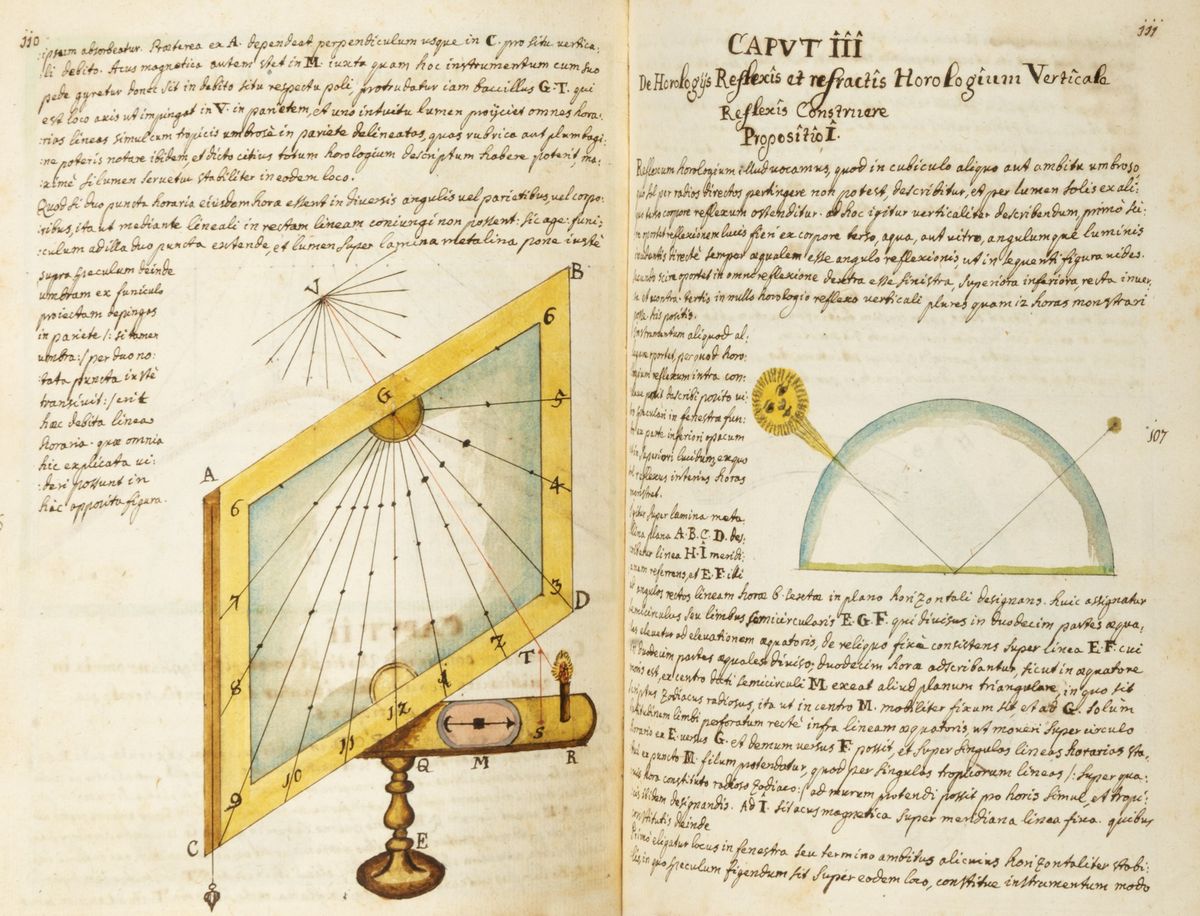 110
ipsum absorbeatur. Præterea ex A. dependeat perpendiculum usque in C. pro situ vertica:
:li debito. Acus magnetica autem stet in M. iuxta quam hoc instrumentum cum suo
pede gyretur donec sit in debito situ respectu poli, protrudatur iam bacillus G. T. qui
est loco axis ut impingat in V. in parietem, et uno intuitu lumen proijciet omnes hora:
:rias lineas simul cum tropicis umbrosè in pariete delineatas, quas rubrica aut plumbagi:
:ne poteris notare ibidem, et dicto citius totum horologium descriptum habere poterit ma:
:ximè si lumen servetur stabiliter in eodem loco.
Quod si duo puncta horaria eiusdem hora essent in diversis angulis vel parietibus vel corpo:
:ribus, ita ut mediante lineali in rectam lineam coniungi non possent: sic age: funi:
:culum ad illa duo puncta extende, et lumen super lamina metalina pone iustè
supra speculum deinde
umbram ex funiculo
proiectam depingas
in pariete /: si tamen
umbra :/ per duo no:
tata puncta iustè
transivit :/ erit
hæc debita linea
horaria. quæ omnia
hic explicata vi:
:deri possunt in
hàc apposita figura.
V
B
6
G
5
A
6
4
7
3
D
8
2
T
1
12
11
S
10
9
Q
M
R
C
E
111
CAPVT III
De Horologijs Reflexis et refractis Horologium Verticale
Reflexis Construere
Propositio I.
Reflexum horologium illud vocamus, quod in cubiculo aliquo aut ambitu umbroso
sol per radios directos pertingere non potest, describitur, et per lumen solis ex ali:
corpore reflexum ostenditur. ad hoc igitur verticaliter describendum, primò sci:
oportet reflexionem lucis fieri ex corpore terso, aqua, aut vitro, angulumque luminis
incidentis directè semper æqualem esse angulo reflexionis ut in sequenti figura vides.
scire oportet in omni reflexione dextra esse sinistra, superiora inferiora, recta inver:
et contra. tertio in nullo horologio reflexo verticali plures quam 12 horas monstrari
his positis.
Instrumentum aliquod al:
oportet, per quod horo:
reflexum intra con:
describi posito
speculari in fenestra fun:
ex parte inferiori opacum
superiori lucidum, ex quo
reflexus interius horas
monstret.
super lamina meta
plana A. B. C. D. des:
linea H. I meridi:
referens, et E. F. illi
107
angulos rectos lineam horæ 6. sextæ in plano horizontali designans. huic assignatur
semicirculus seu limbus semicircularis E. G. F. qui divisus in duodecim partes æqua:
elevetur ad elevationem æquatoris, de reliquo fixè consistens super linea E. F. cui
duodecim partes æquales diviso; duodecim horæ adscribantur, sicut in æquatore
moris est, ex centro dicti semicirculi M. exeat aliud planum triangulare, in quo sit
Zodiacus radiosus, ita ut in centro M. mobiliter fixum sit, et ad G. solum
limbi perforatum rectè infra lineam æquatoris, ut moveri super circulo
horario ex E. versus G. et demum versus F possit, et super singulas lineas horarias sta:
ex puncto M. filum protendatur, quod per singulas tropicorum lineas /: super qua:
hora constituto radioso Zodiaco :/ ad murum protendi possit pro horis simul, et tropi:
ibidem designandis. Ad I. sit acus magnetica super meridiana linea fixa. quibus
constitutis deinde
Primò eligatur locus in fenestra seu termino ambitus alicuius horizontaliter stabi:
in quo speculum figendum sit super eodem loco, constitue instrumentum modo